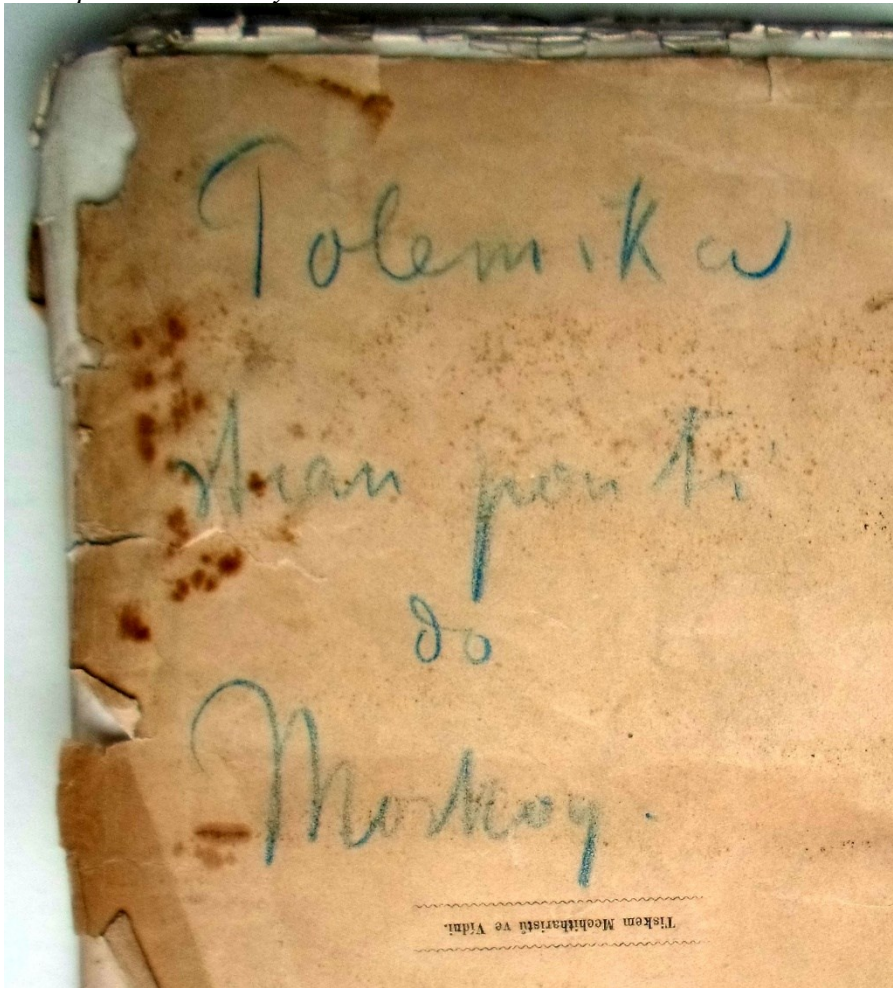 Polemika
stran pouti
do
Moskvy.
Tiskem Mechitharistů ve Vídni.